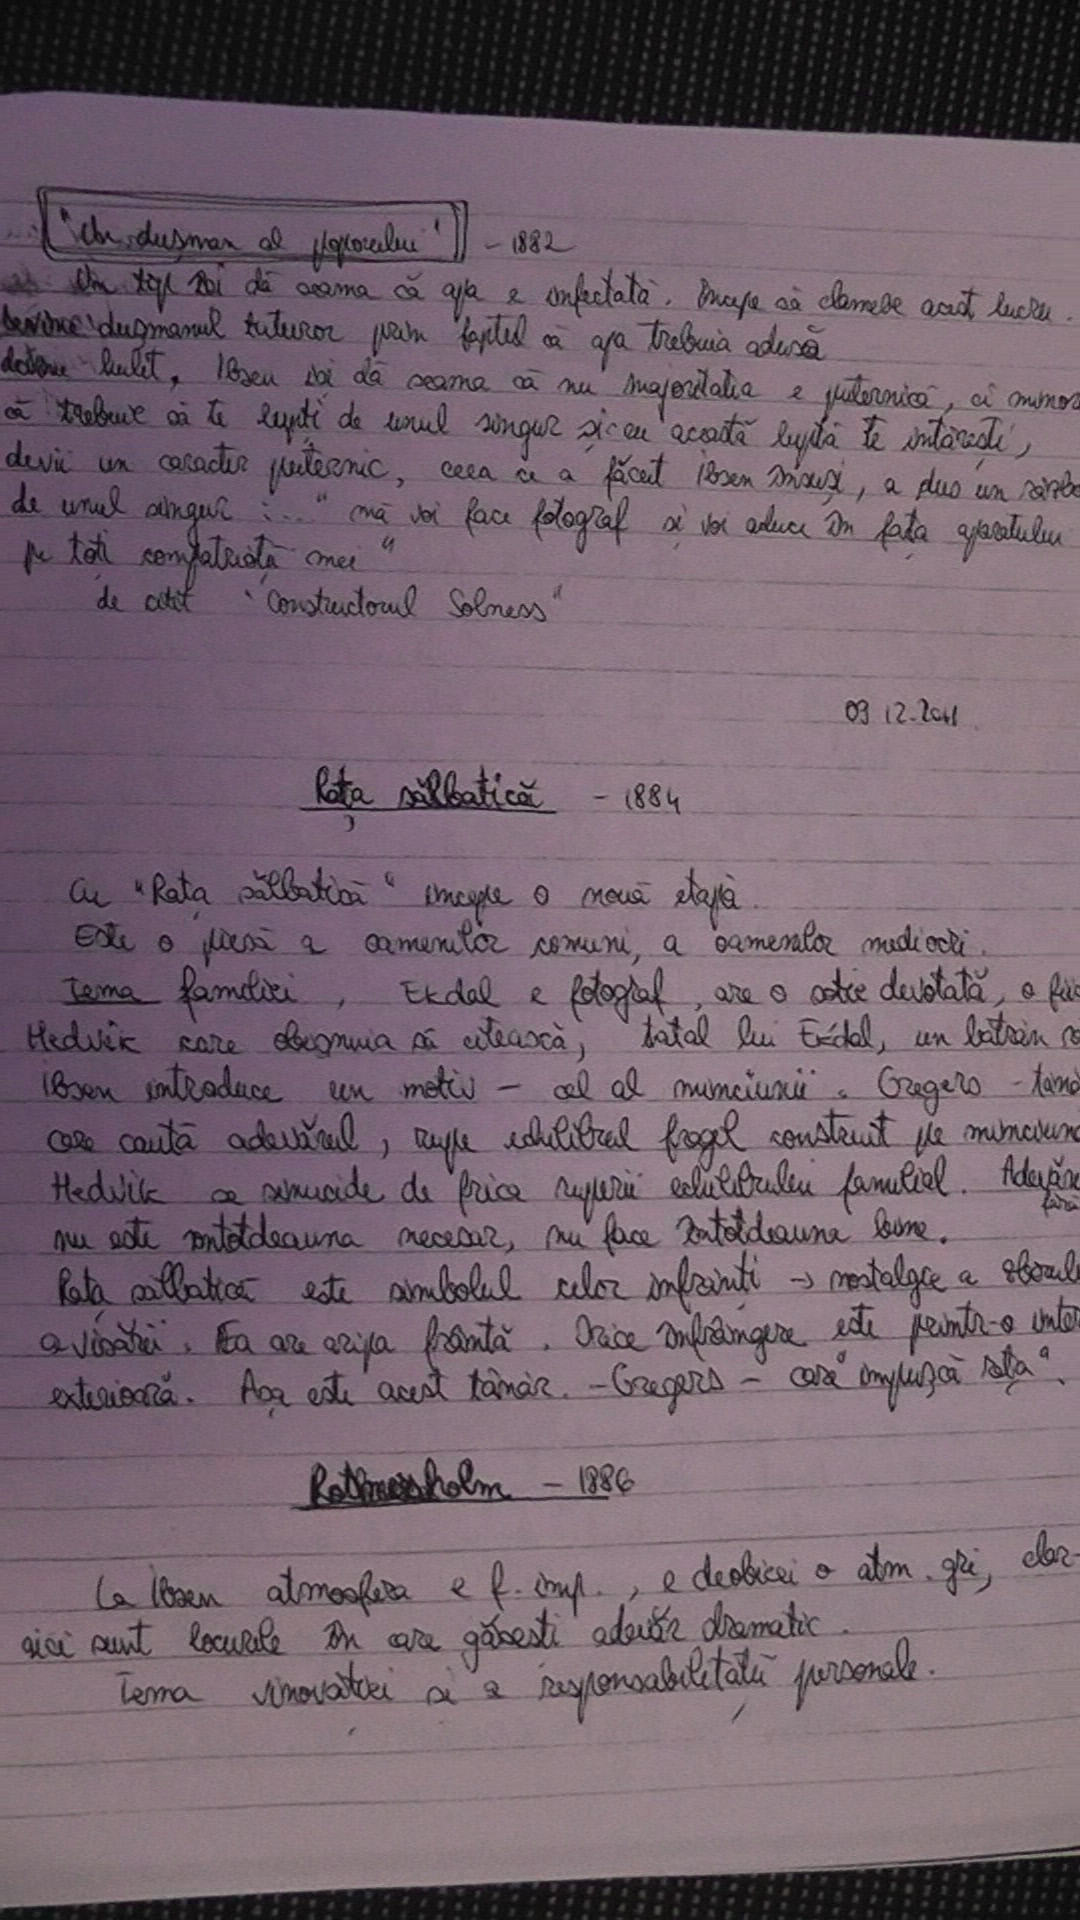 "Un dușman al poporului" - 1882
Un tip își dă seama că apa e infectată. Începe să clameze acest lucru.
devine dușmanul tuturor prin faptul că apa trebuia adusă
Ibsen își dă seama că nu majoritatea e puternică, ci
că trebuie să te lupți de unul singur și cu această luptă te întărești,
devii un caracter puternic, ceea ce a făcut Ibsen însuși, a dus un
de unul singur :... "mă voi face fotograf și voi aduce în fața aparatului
pe toți compatrioții mei"
de citit "Constructorul Solness"
03 12.2011
Rața sălbatică - 1884
Cu "Rața sălbatică" începe o nouă etapă.
Este o piesă a oamenilor comuni, a oamenilor mediocri.
Tema familiei, Ekdal e fotograf, are o soție devotată, o
Hedvik care obișnuia să citească, tatăl lui Ekdal, un bătrân
Ibsen introduce un motiv - cel al minciunii. Gregers -
care caută adevărul, rupe echilibrul fragil construit pe
Hedvik se sinucide de frica ruperii echilibrului familial.
nu este întotdeauna necesar, nu face întotdeauna bine.
Rața sălbatică este simbolul celor înfrânți → nostalgie a
a visării. Ea are aripa frântă. Orice înfrângere este printr-o
exterioară. Așa este acest tânăr. - Gregers - care "împușcă rața".
Rosmersholm - 1886
La Ibsen atmosfera e f. imp., e deobicei o atm. gri, dar
aici sunt locurile în care găsești adevăr dramatic.
Tema vinovăției și a responsabilității personale.